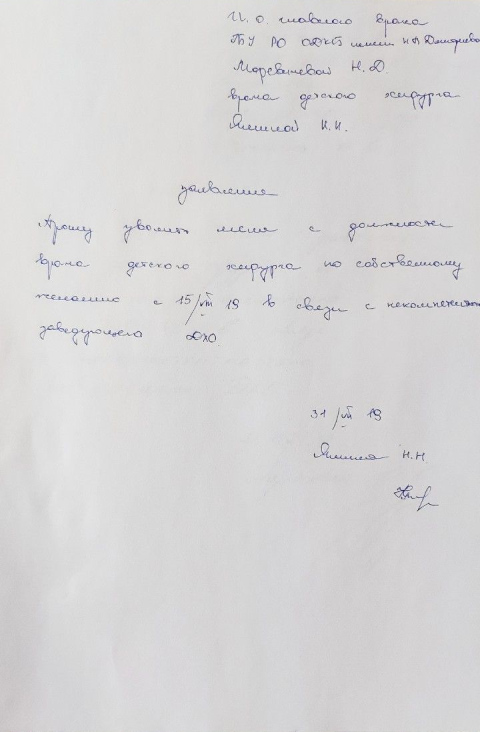 И. о. главного врача
ГБУ РО ОДКБ имени Н.В. Дмитриевой
Морсвеневой Н.Д.
врача детского хирурга
Яшиной Н.Н.
заявление
Прошу уволить меня с должности
врача детского хирурга по собственному
желанию с 15/VIII 19 в связи с
заведующего ДХО.
31/VII 19
Яшина Н.Н